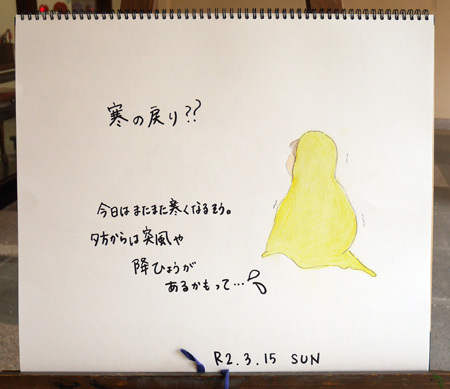 寒の戻り??
今日はまたまた寒くなるそう。
夕方からは突風や
降ひょうが
あるかもって…
R2.3.15 SUN